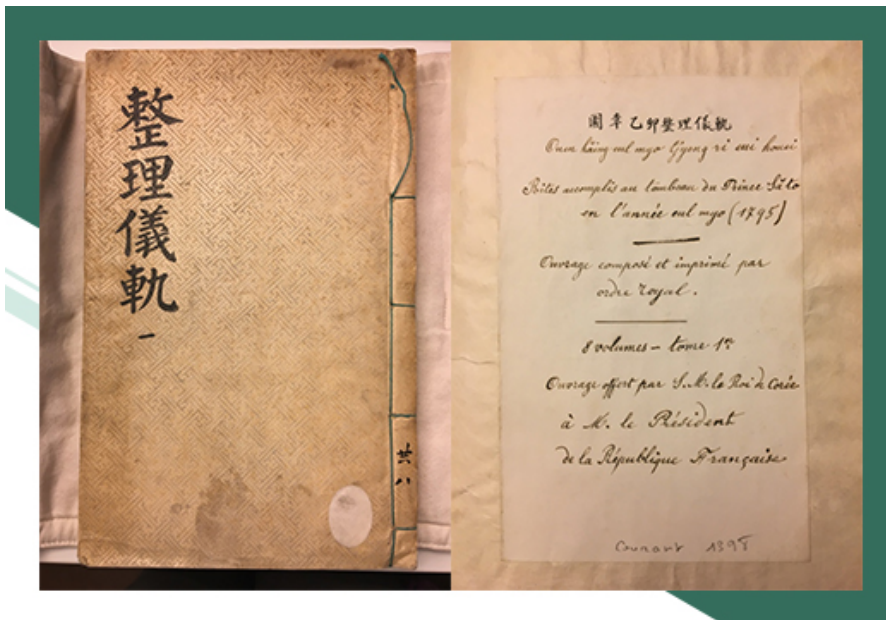 整理儀軌 一
共八
園幸乙卯整理儀軌
Ouen häing eul myo tjyeng ri eui kouei
Rites accomplis au tombeau du Prince Să to
en l'année eul myo (1795)
Ouvrage composé et imprimé par
ordre royal.
8 volumes – tome 1er
Ouvrage offert par S. M. le Roi de Corée
à M. le Président
de la République Française
Courant 1398